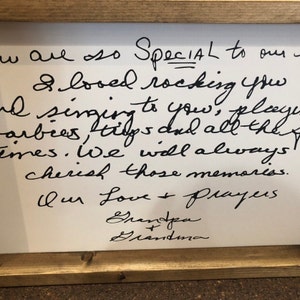 are so SPECIAL to our
I loved rocking you
singing to you,
trips and all the
times. We will always
cherish those memories.
Our Love + Prayers
Grandpa
+
Grandma